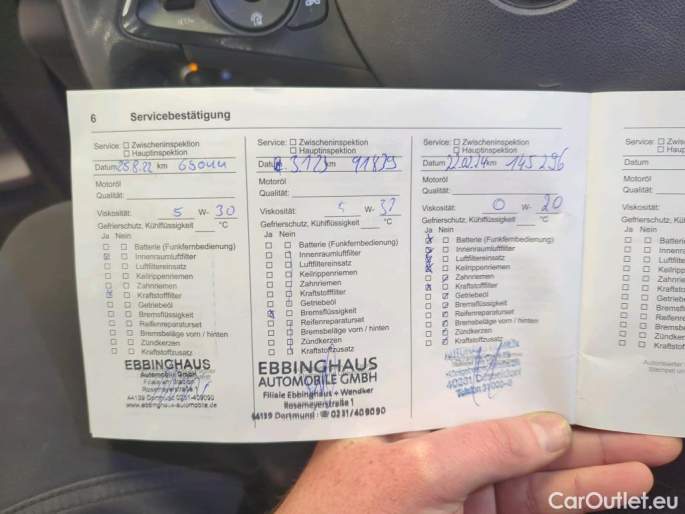 6 Servicebestätigung
Service: Zwischeninspektion
Hauptinspektion
Datum 25.8.22 km
Motoröl
Qualität:
Viskosität: 5 W- 30
Gefrierschutz, Kühlflüssigkeit °C
Ja Nein
Batterie (Funkfernbedienung)
Innenraumluftfilter
Luftfiltereinsatz
Keilrippenriemen
Zahnriemen
Kraftstofffilter
Getriebeöl
Bremsflüssigkeit
Reifenreparaturset
Bremsbeläge vorn / hinten
Zündkerzen
Kraftstoffzusatz
EBBINGHAUS
Automobile GmbH
Rosemeyerstraße 1
44139 Dortmund 0231-409090
www.ebbinghaus-automobile.de
Service: Zwischeninspektion
Hauptinspektion
Datum km 91839
Motoröl
Qualität:
Viskosität: 5 W-
Gefrierschutz, Kühlflüssigkeit °C
Ja Nein
Batterie (Funkfernbedienung)
Innenraumluftfilter
Luftfiltereinsatz
Keilrippenriemen
Zahnriemen
Kraftstofffilter
Getriebeöl
Bremsflüssigkeit
Reifenreparaturset
Bremsbeläge vorn / hinten
Zündkerzen
Kraftstoffzusatz
EBBINGHAUS
AUTOMOBILE GMBH
Filiale Ebbinghaus + Wendker
Rosemeyerstraße 1
44139 Dortmund · ☎ 0231/409090
Service: Zwischeninspektion
Hauptinspektion
Datum 22.02.24 km 145296
Motoröl
Qualität:
Viskosität: 0 W- 20
Gefrierschutz, Kühlflüssigkeit °C
Ja Nein
Batterie (Funkfernbedienung)
Innenraumluftfilter
Luftfiltereinsatz
Keilrippenriemen
Zahnriemen
Kraftstofffilter
Getriebeöl
Bremsflüssigkeit
Reifenreparaturset
Bremsbeläge vorn / hinten
Zündkerzen
Kraftstoffzusatz
Service:
Datum
Motoröl
Qualität:
Viskosität:
Gefrierschutz,
Ja Nein
Batterie
Innenra
Luftfilter
Keilripp
Zahnrie
Kraftsto
Getriebe
Bremsfl
Reifenre
Bremsb
Zündker
Kraftsto
CarOutlet.eu